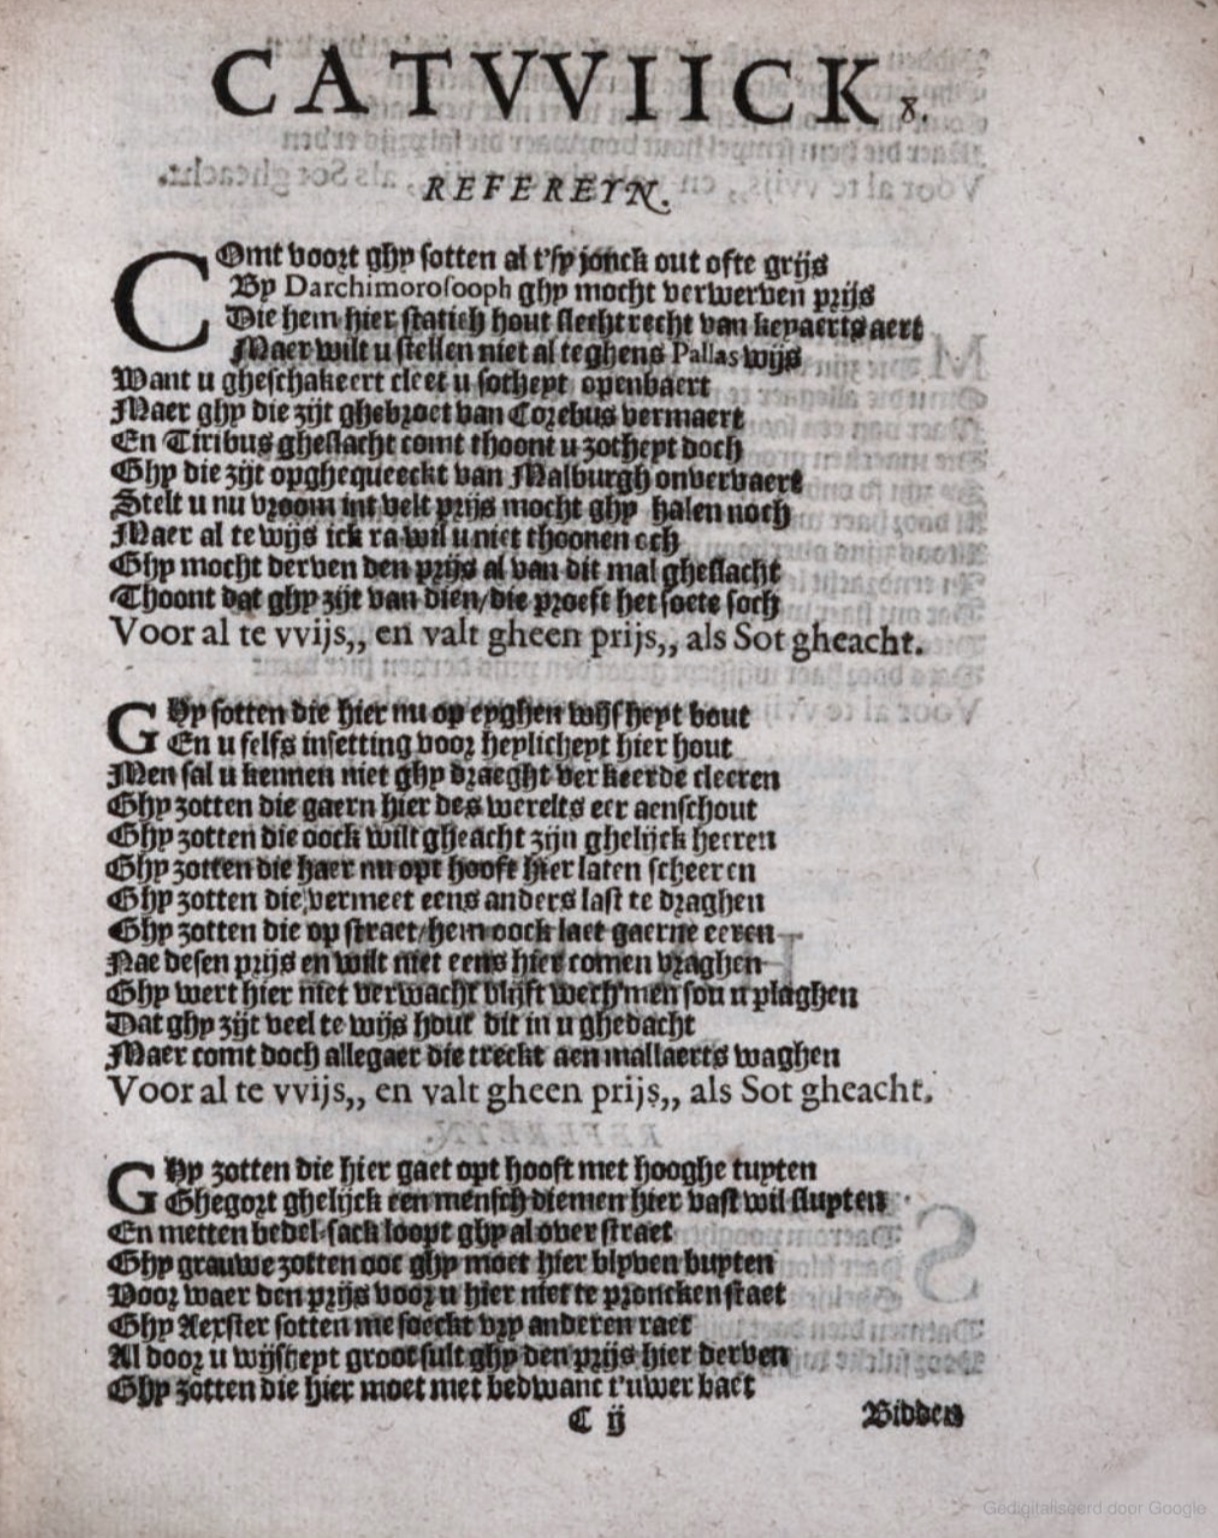 CATVVIICK. 8.
REFEREYN.
COmt voort ghy sotten al t'sy jonck out ofte grijs
By Darchimorosooph ghy mocht verwerven prijs
Die hem hier statich hout slecht recht van keyaerts aert
Maer wilt u stellen niet al teghens Pallas wijs
Want u gheschakeert cleet u sotheyt openbaert
Maer ghy die zijt ghebroet van Corebus vermaert
En Tiribus gheslacht comt thoont u zotheyt doch
Ghy die zijt opghequeeckt van Malburgh onvervaert
Stelt u nu vroom int velt prijs mocht ghy halen noch
Maer al te wijs ick ra wil u niet thoonen och
Ghy mocht derven den prijs al van dit mal gheslacht
Thoont dat ghy zijt van dien/die proeft het soete soch
Voor al te vvijs,, en valt gheen prijs,, als Sot gheacht.
GHy sotten die hier nu op eyghen wijsheyt bout
En u selfs insetting voor heylicheyt hier hout
Men sal u kennen niet ghy draeght verkeerde cleeren
Ghy zotten die gaern hier des werelts eer aenschout
Ghy zotten die oock wilt gheacht zijn ghelijck heeren
Ghy zotten die haer nu opt hooft hier laten scheeren
Ghy zotten die vermeet eens anders last te draghen
Ghy zotten die op straet/hem oock laet gaerne eeren
Nae desen prijs en wilt niet eens hier comen vraghen
Ghy wert hier niet verwacht blijft wech men sou u plaghen
Dat ghy zijt veel te wijs hout dit in u ghedacht
Maer comt doch allegaer die treckt aen mallaerts waghen
Voor al te vvijs,, en valt gheen prijs,, als Sot gheacht.
GHy zotten die hier gaet opt hooft met hooghe tuyten
Ghegort ghelijck een mensch diemen hier vast wil sluyten
En metten bedel-sack loopt ghy al over straet
Ghy grauwe zotten ooc ghy moet hier blyven buyten
Voor waer den prijs voor u hier niet te proncken staet
Ghy Aexster sotten me soeckt vry anderen raet
Al door u wijsheyt groot sult ghy den prijs hier derven
Ghy zotten die hier moet met bedwanc t'uwer baet
C ij
Bidden
Gedigitaliseerd door Google